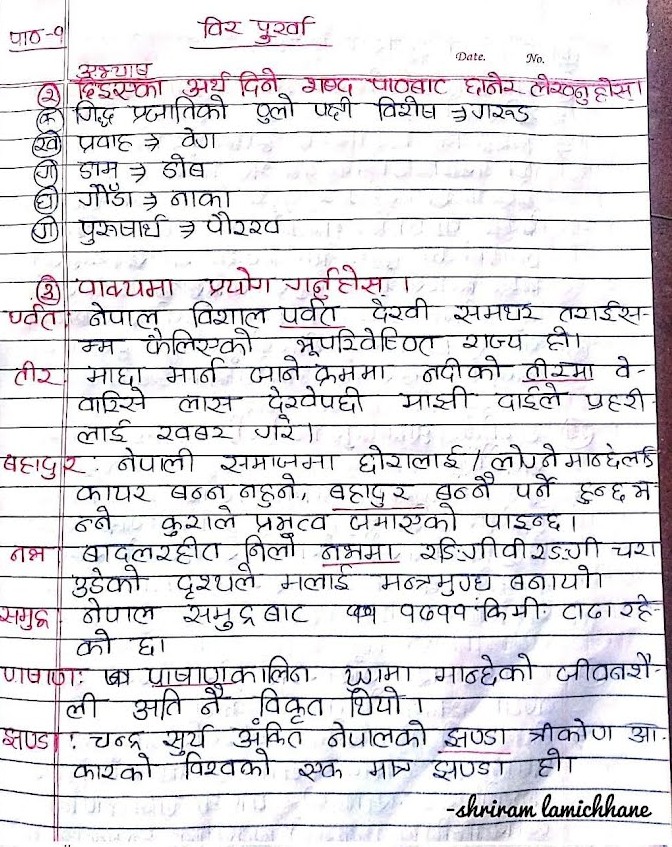 पाठ-१
विर पुर्खा
Date. No.
अभ्यास
१ दिइएका अर्थ दिने शब्द पाठबाट छानेर लेख्नुहोस।
क गिद्ध प्रजातिको ठुलो पक्षी विशेष → गरुड
ख प्रवाह → वेग
ग डाम → डोब
घ गौँडा → नाका
पुरुषार्थ → पौरख
२ वाक्यमा प्रयोग गर्नुहोस्।
पर्वत: नेपाल विशाल पर्वत देखी समथर तराईस-
म्म फैलिएको भूपरिवेष्ठित राज्य हो।
तीर माछा मार्न जाने क्रममा नदीको तीरमा वे-
वारिसे लास देखेपछी माझी दाईले प्रहरी
लाई खबर गरे।
बहादुर: नेपाली समाजमा छोरालाई / लोग्ने मान्छेलाई
कायर बन्न नहुने, बहादुर बन्नै पर्ने हुन्छ भ
न्ने कुराले प्रभुत्व जमाएको पाइन्छ।
नभ बादलरहीत निलो नभमा रङिगीविरङगी चरा
उडेको दृश्यले मलाई मन्त्रमुग्ध बनायो।
समुद्र नेपाल समुद्रबाट ११ १७११ किमी: टाढा रहे-
को छ।
पाषाण: पाषाणकालिन युगमा मान्छेको जीवनशै-
ली अति नै विकृत थियो।
झण्डा: चन्द्र सुर्य अंकित नेपालको झण्डा त्रीकोण आ-
कारको विश्वको एक मात्र झण्डा हो।
-shriram lamichhane